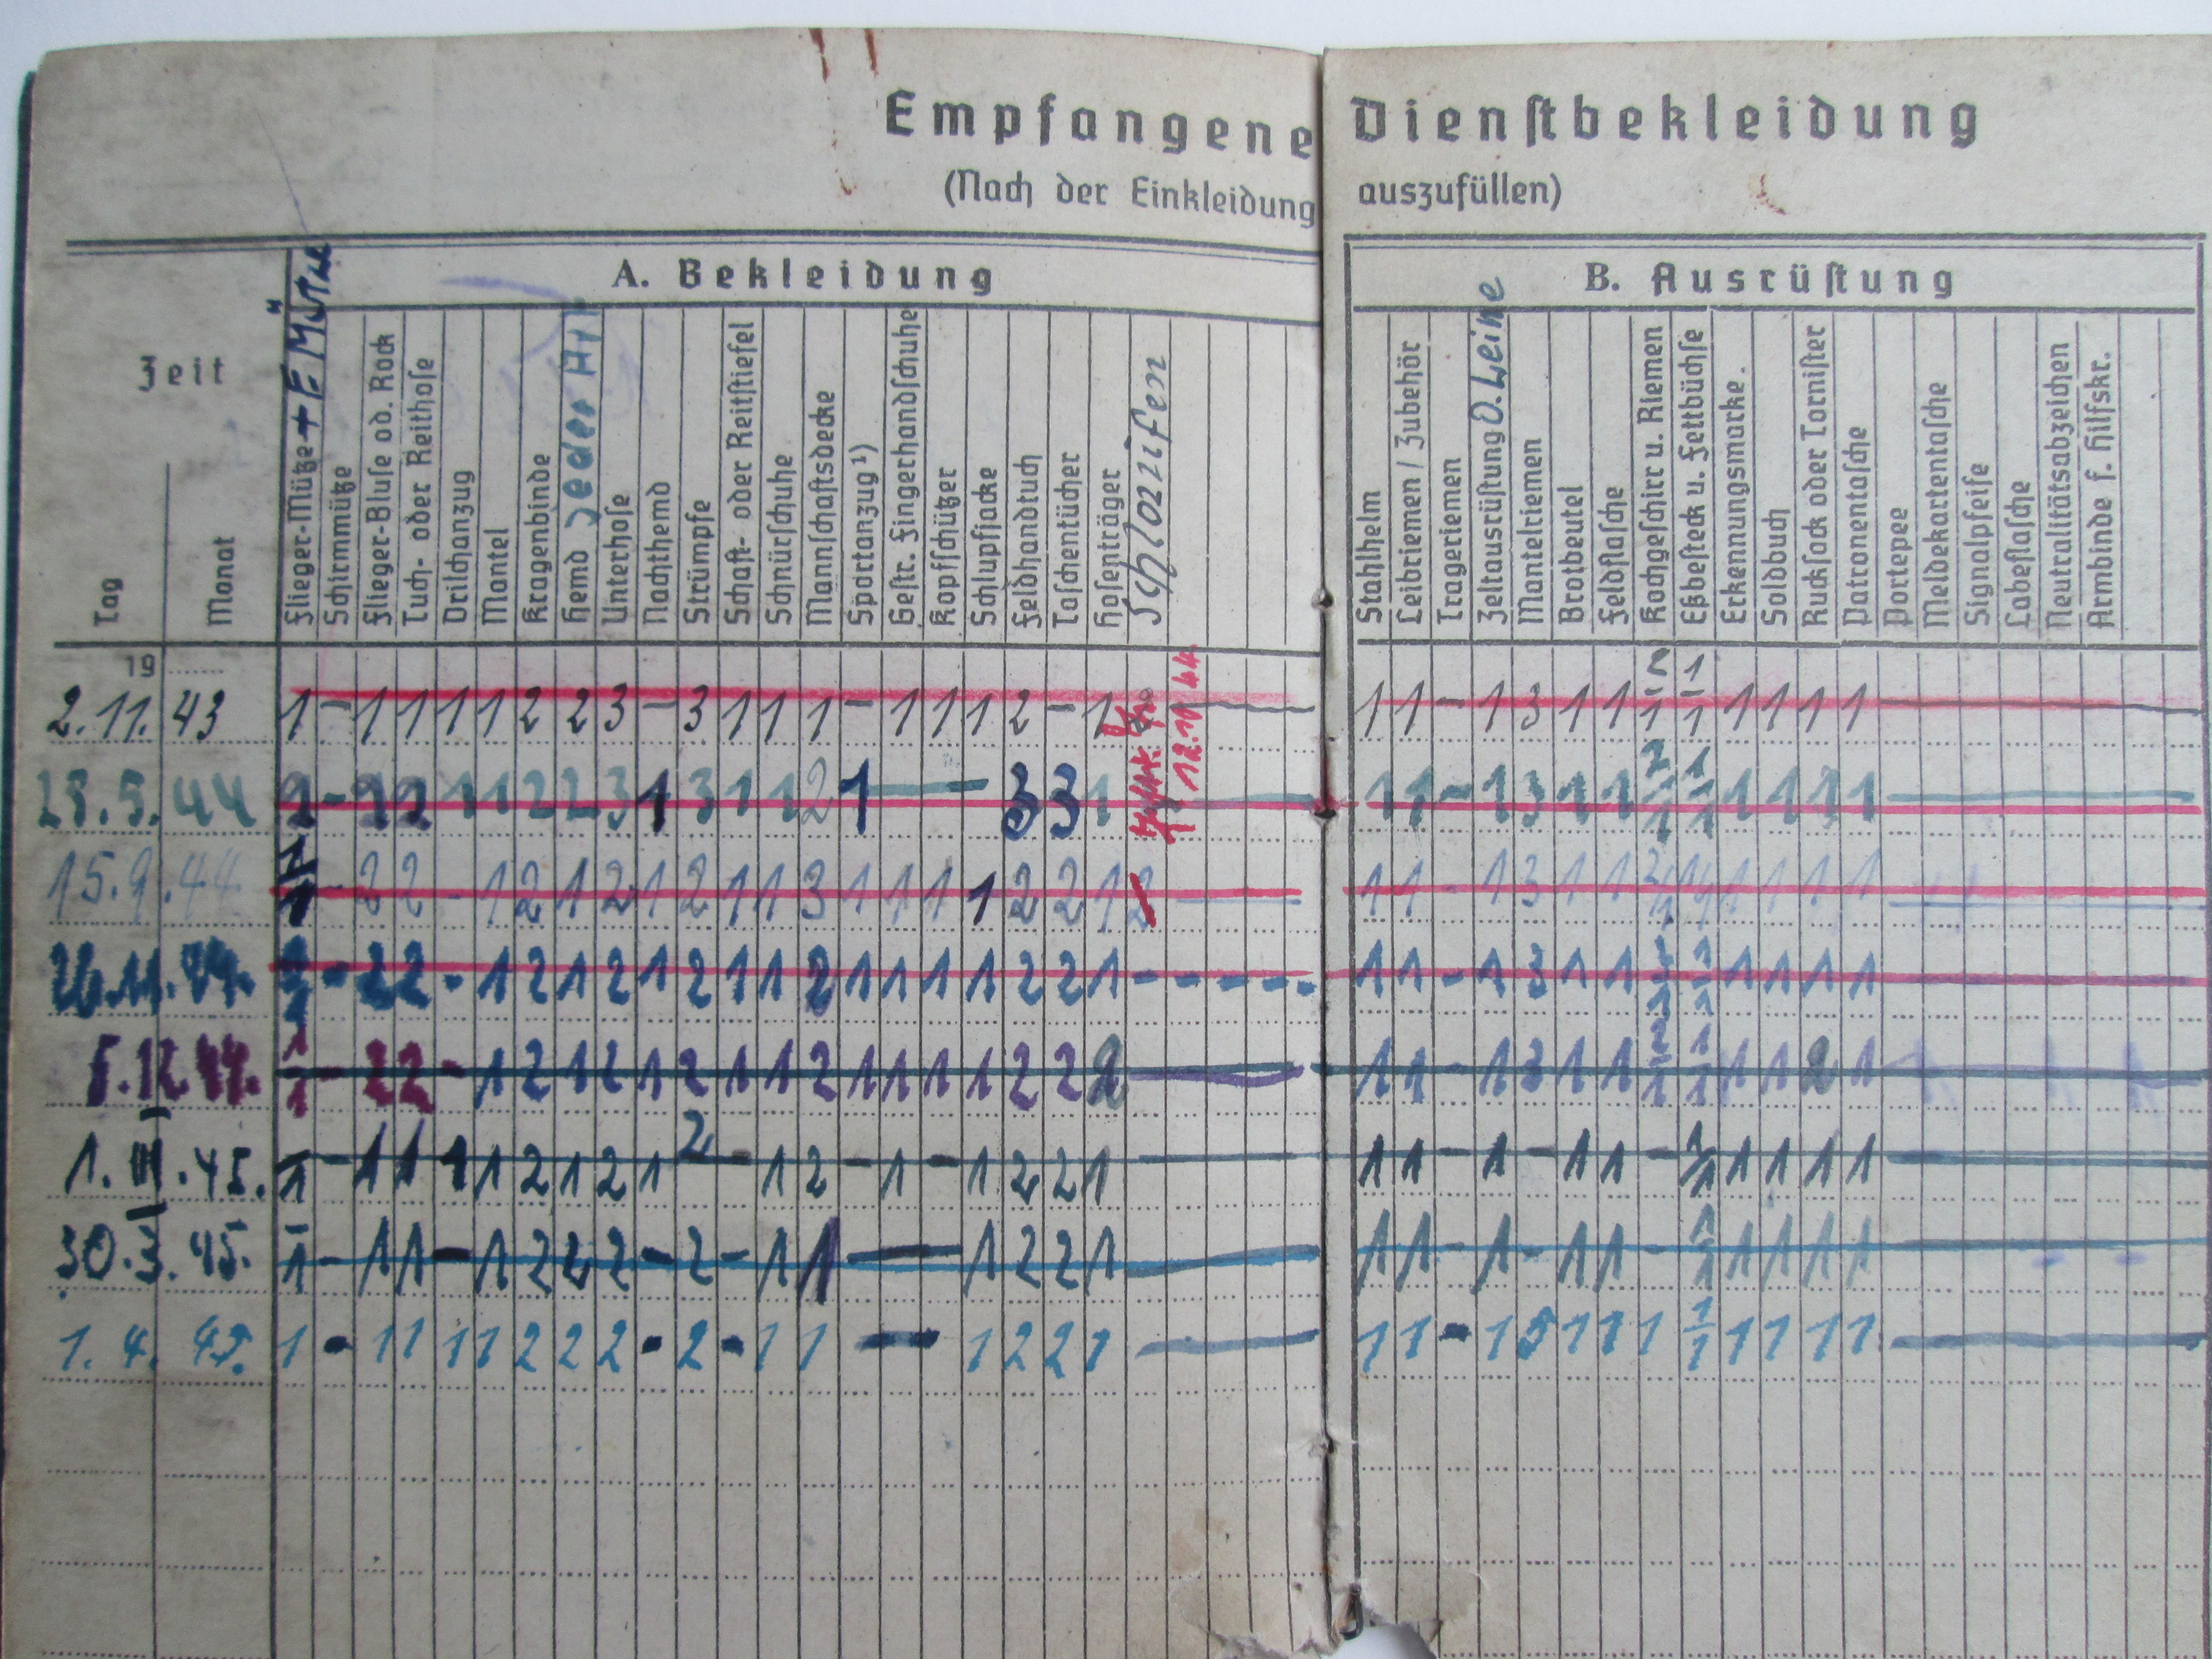 Empfangene Dienstbekleidung
(Nach der Einkleidung auszufüllen)
Zeit
Tag
Monat
A. Bekleidung
Flieger-Mütze + F. Mütze
Schirmmütze
Flieger-Bluse od. Rock
Tuch- oder Reithose
Drilchanzug
Mantel
Kragenbinde
Hemd jeder Art
Unterhose
Nachthemd
Strümpfe
Schaft- oder Reitstiefel
Schnürschuhe
Mannschaftsdecke
Sportanzug ¹)
Gestr. Fingerhandschuhe
Kopfschützer
Schlupfjacke
Feldhandtuch
Taschentücher
Hosenträger
B. Ausrüstung
Stahlhelm
Leibriemen / Zubehör
Trageriemen
Zeltausrüstung O. Leine
Mantelriemen
Brotbeutel
Feldflasche
Kochgeschirr u. Riemen
Eßbesteck u. Fettbüchse
Erkennungsmarke.
Soldbuch
Rucksack oder Tornister
Patronentasche
Portepee
Meldekartentasche
Signalpfeife
Labeflasche
Neutralitätsabzeichen
Armbinde f. Hilfskr.
19 ......
2.11. 43 1 - 1 1 1 1 2 2 3 - 3 1 1 1 - 1 1 1 2 - 1 1 1 - 1 3 1 1 2/1 1/1 1 1 1 1
12.10 44
25.5. 44 2 - 2 2 1 1 2 2 3 1 3 1 1 2 1 — 3 3 1 1 1 - 1 3 1 1 2/1 1/1 1 1 1 1
15.9.44 - 2 2 - 1 2 1 2 1 2 1 1 3 1 1 1 1 2 2 1 2 1 1 - 1 3 1 1 2/1 1/1 1 1 1 1
26.11.44. - 2 2 - 1 2 1 2 1 2 1 1 2 1 1 1 1 2 2 1 - - - - 1 1 - 1 3 1 1 1/1 1 1 1 1
5.12.44. 1/1 - 2 2 - 1 2 1 2 1 2 1 1 2 1 1 1 1 2 2 2 — 1 1 - 1 3 1 1 2/1 1/1 1 1 2 1
1. III. 45. 1 - 1 1 1 1 2 1 2 1 2 - 1 2 - 1 - 1 2 2 1 — 1 1 - 1 - 1 1 - 1/1 1 1 1 1 —
30.3.45. 1 - 1 1 - 1 2 2 2 - 2 - 1 1 — 1 2 2 1 — 1 1 - 1 - 1 1 - 1/1 1 1 1 1 —
1. 4. 45. 1 - 1 1 1 1 2 2 2 - 2 - 1 1 — 1 2 2 1 — 1 1 - 1 5 1 1 1 1/1 1 1 1 1 —